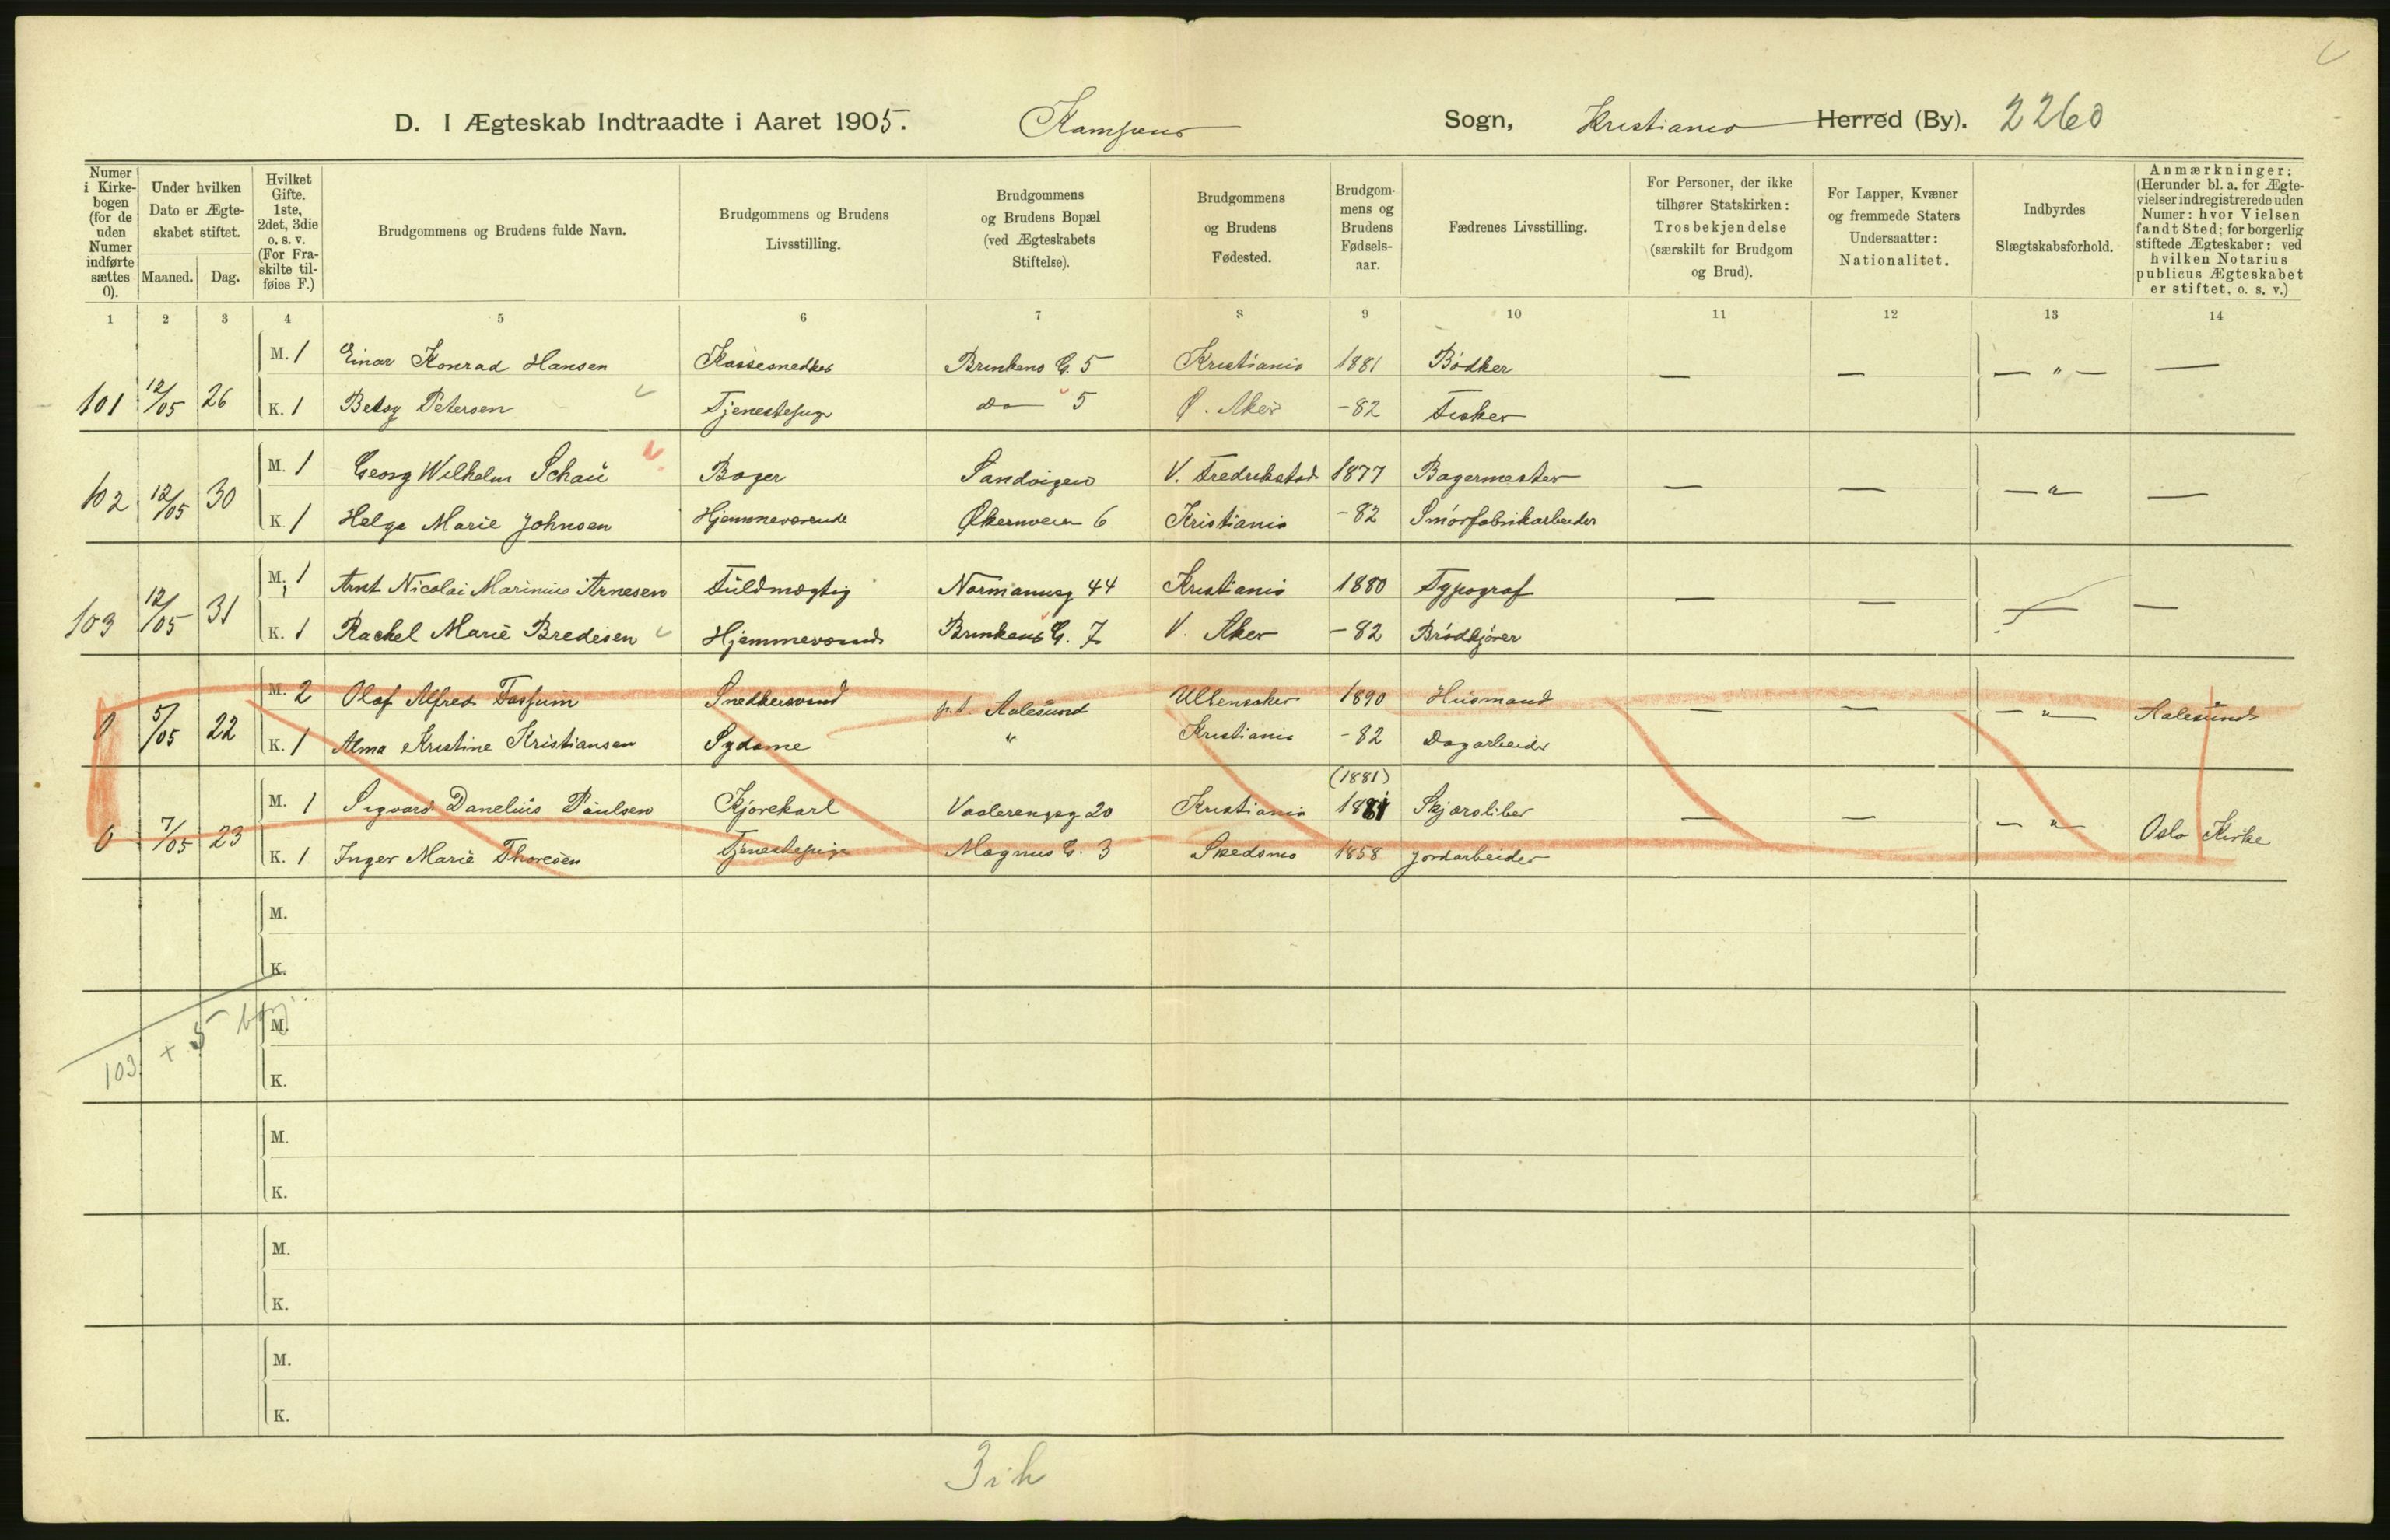 D. I Ægteskab Indtraadte i Aaret 1905. Kampens Sogn, Kristiania Herred (By). 2260
Numer i Kirkebogen (for de uden Numer indførte sættes 0).
Under hvilken Dato er Ægteskabet stiftet.
Maaned. Dag.
Hvilket Gifte. 1ste, 2det, 3die o. s. v. (For Fraskilte tilføies F.)
Brudgommens og Brudens fulde Navn.
Brudgommens og Brudens Livsstilling.
Brudgommens og Brudens Bopæl (ved Ægteskabets Stiftelse).
Brudgommens og Brudens Fødested.
Brudgommens og Brudens Fødselsaar.
Fædrenes Livsstilling.
For Personer, der ikke tilhører Statskirken: Trosbekjendelse (særskilt for Brudgom og Brud).
For Lapper, Kvæner og fremmede Staters Undersaatter: Nationalitet.
Indbyrdes Slægtskabsforhold.
Anmærkninger: (Herunder bl. a. for Ægtevielser indregistrerede uden Numer: hvor Vielsen fandt Sted; for borgerlig stiftede Ægteskaber: ved hvilken Notarius publicus Ægteskabet er stiftet, o. s. v.)
1 2 3 4 5 6 7 8 9 10 11 12 13 14
M. 1 Einar Konrad Hansen Kassesnedker Brinkens G. 5 Kristiania 1881 Bødker — — — " — —
101 12/05 26 K. 1 Betsy Petersen Tjenestepige do 5 Ø. Aker -82 Fisker
M. 1 Georg Wilhelm Schau Bager Sandvigen V. Fredrikstad 1877 Bagermester — — — " — —
102 12/05 30 K. 1 Helga Marie Johnsen Hjemmeværende Økernveien 6 Kristiania -82 Smørfabrikarbeider
M. 1 Arnt Nicolai Marinius Arnesen Fuldmægtig Normannsg 44 Kristiania 1880 Typograf — — — —
103 12/05 31 K. 1 Rachel Marie Bredesen Hjemmeværende Brinkens G. 7 V. Aker -82 Brødkjører
M. 2 Olaf Alfred Fossum Snedkersvend p.t. Aalesund Ullensaker 1890 Husmand — — — " — Aalesund
0 5/05 22 K. 1 Alma Kristine Kristiansen Sydame " Kristiania -82 Dagarbeider
(1881)
M. 1 Sigvard Danelius Paulsen Kjørekarl Vaalerengsg 20 Kristiania 1881 Skjærsliber — — — " —
0 7/05 23 K. 1 Inger Marie Thoresen Tjenestepige Magnus G. 3 Skedsmo 1858 Jordarbeider Oslo Kirke
M.
K.
M.
103 + 5
K.
M.
K.
M.
K.
M.
K.
3 i h